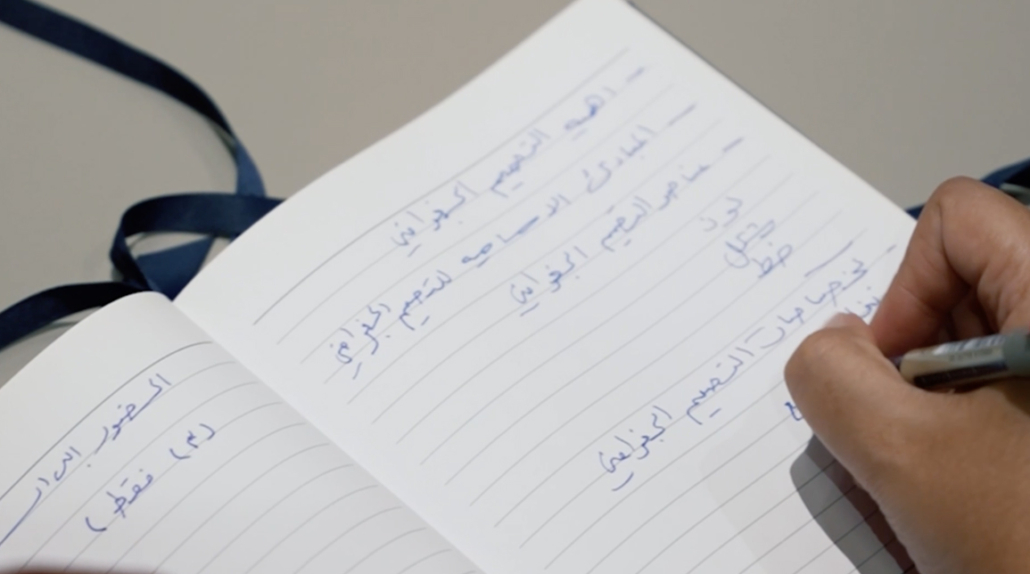 - اهميه التصميم الجغرافي
- المبادئ الاساسيه للتصميم الجغرافي
- عناصر التصميم الجغرافي
لون
شكل
خط
- تخصصات التصميم الجغرافي
الحضور
(٣) فقط)